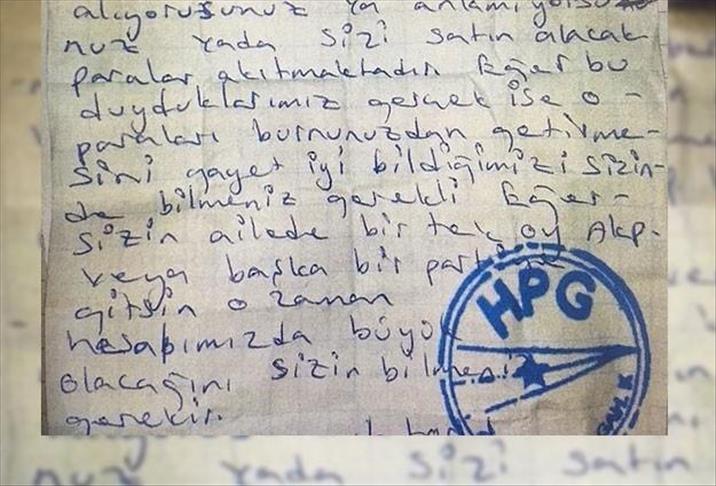 alıyorsunuz ya anlamıyorsu
nuz yada sizi satın alacak
paralar akıtmaktadır Eğer bu
duyduklarımız gerçek ise o -
paraları burnunuzdan getirme-
sini gayet iyi bildiğimizi sizin-
de bilmeniz gerekli Eğer-
sizin ailede bir tek oy Akp-
veya başka bir partiye
gitsin o zaman
hesabımızda büyük
olacağını sizin bilmeniz
gerekir.
HPG
nuz yada sizi satın